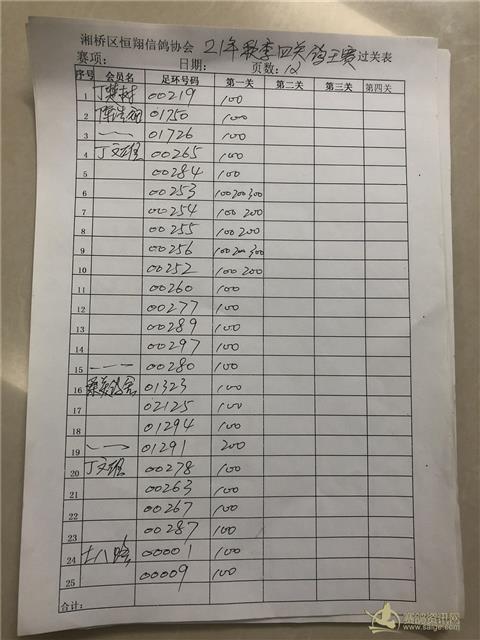 湘桥区恒翔信鸽协会 21年秋季四关鸽王赛过关表
赛项： 日期： 页数：12
序号 会员名 足环号码 第一关 第二关 第三关 第四关
1 丁楚树 00219 100
2 01750 100
3 〃 01726 100
4 丁文雄 00265 100
5 00284 100
6 00253 100 200 300
7 00254 100 200
8 00255 100 200
9 00256 100 200 300
10 00252 100 200
11 00260 100
12 00277 100
13 00289 100
14 00297 100
15 00280 100
16 01323 100
17 02125 100
18 01294 100
19 01291 200
20 丁文雄 00278 100
21 00263 100
22 00267 100
23 00287 100
24 十八哈 00001 100
25 00009 100
合计：
赛鸽资讯网
www.saige.com